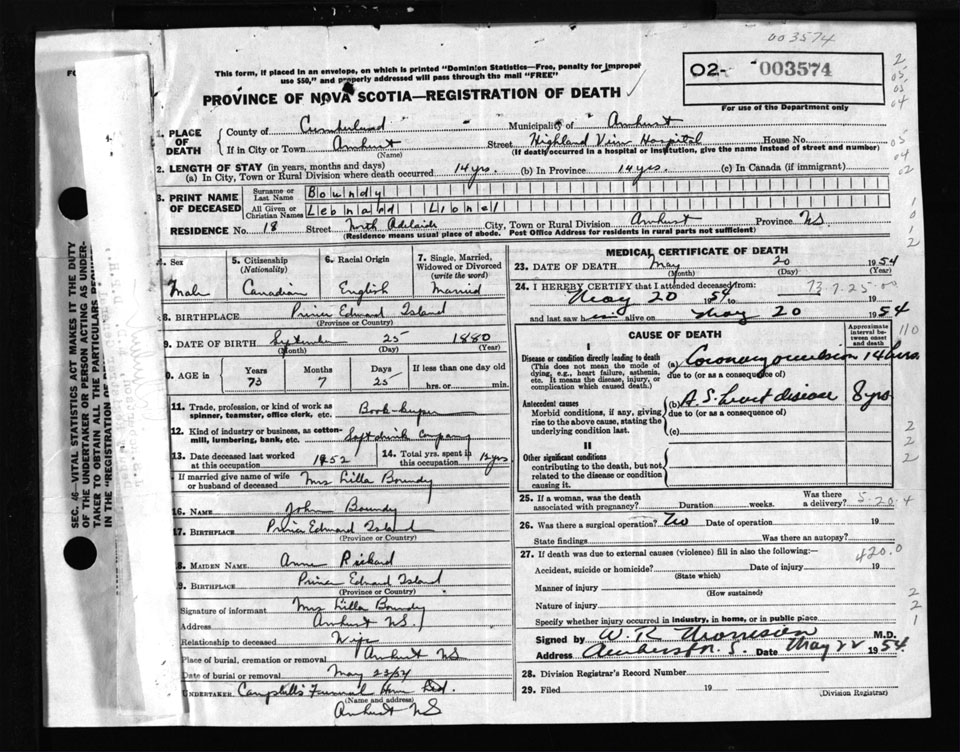 003574
This form, if placed in an envelope, on which is printed "Dominion Statistics—Free, penalty for improper
use $50," and properly addressed will pass through the mail "FREE"
02- 003574
For use of the Department only
PROVINCE OF NOVA SCOTIA—REGISTRATION OF DEATH
1. PLACE OF DEATH { County of Cumberland Municipality of Amherst
If in City or Town Amherst Street Highland View Hospital House No.
(Name) (If death occurred in a hospital or institution, give the name instead of street and number)
2. LENGTH OF STAY (in years, months and days)
(a) In City, Town or Rural Division where death occurred 14 yrs. (b) In Province 14 yrs. (c) In Canada (if immigrant)
3. PRINT NAME OF DECEASED { Surname or Last Name Boundy
All Given or Christian Names Leonard Lionel
RESIDENCE No. 18 Street North Adelaide City, Town or Rural Division Amherst Province NS
(Residence means usual place of abode. Post Office Address for residents in rural parts not sufficient)
4. Sex Male
5. Citizenship (Nationality) Canadian
6. Racial Origin English
7. Single, Married, Widowed or Divorced (write the word) Married
8. BIRTHPLACE Prince Edward Island
(Province or Country)
9. DATE OF BIRTH September 25 1880
(Month) (Day) (Year)
0. AGE in { Years 73 Months 7 Days 25 If less than one day old hrs. or min.
11. Trade, profession, or kind of work as spinner, teamster, office clerk, etc. Book-keeper
12. Kind of industry or business, as cotton-mill, lumbering, bank, etc. Soft drink Company
13. Date deceased last worked at this occupation 1952
14. Total yrs. spent in this occupation 12 yrs
If married give name of wife or husband of deceased Mrs Lilla Boundy
16. NAME John Boundy
17. BIRTHPLACE Prince Edward Island
(Province or Country)
8. MAIDEN NAME Anne Rickard
9. BIRTHPLACE Prince Edward Island
(Province or Country)
Signature of informant Mrs Lilla Boundy
Address Amherst NS.
Relationship to deceased Wife
Place of burial, cremation or removal Amherst NS
Date of burial or removal May 22/54
UNDERTAKER Campbell's Funeral Home Ltd.
(Name and address)
Amherst NS
MEDICAL CERTIFICATE OF DEATH
23. DATE OF DEATH May 20 1954
(Month) (Day) (Year)
24. I HEREBY CERTIFY that I attended deceased from:
73-7-25-00
May 20 1954 to 19
and last saw him alive on May 20 1954
CAUSE OF DEATH
Approximate interval between onset and death
I
Disease or condition directly leading to death
(This does not mean the mode of dying, e.g., heart failure, asthenia, etc. It means the disease, injury, or complication which caused death.)
(a) Coronary occlusion 14 hrs.
due to (or as a consequence of)
Antecedent causes
Morbid conditions, if any, giving rise to the above cause, stating the underlying condition last.
(b) A. S. heart disease 8 yrs
due to (or as a consequence of)
(c)
II
Other significant conditions
contributing to the death, but not related to the disease or condition causing it.
25. If a woman, was the death associated with pregnancy? Duration weeks. Was there a delivery?
5-20-4
26. Was there a surgical operation? No Date of operation 19
State findings Was there an autopsy?
27. If death was due to external causes (violence) fill in also the following:—
420.0
Accident, suicide or homicide? Date of injury 19
(State which)
Manner of injury
(How sustained)
Nature of injury
Specify whether injury occurred in industry, in home, or in public place
Signed by W. R. Morrison M.D.
Address Amherst N. S. Date May 22 1954
28. Division Registrar's Record Number
29. Filed 19
(Division Registrar)
SEC. 46— VITAL STATISTICS ACT MAKES IT THE DUTY
OF THE UNDERTAKER OR PERSON ACTING AS UNDER-
TAKER TO OBTAIN ALL THE PARTICULARS
IN THE "REGISTRATION OF